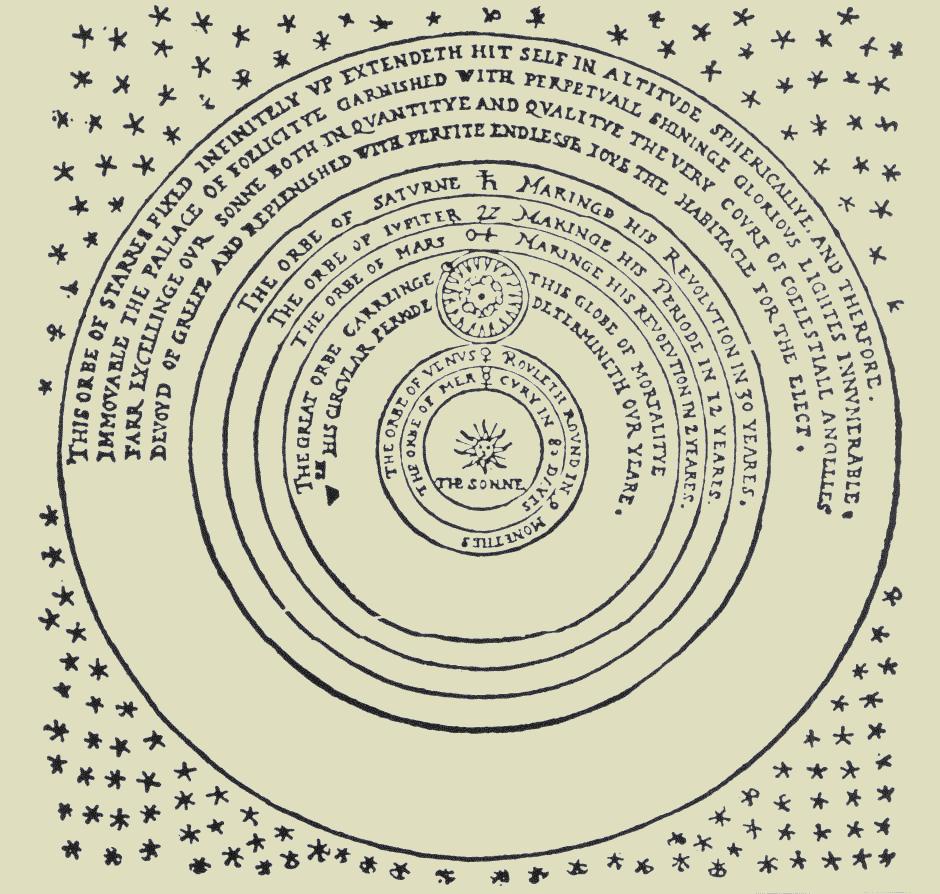 THIS ORBE OF STARRES FIXED INFINITELY VP EXTENDETH HIT SELF IN ALTITVDE SPHERICALLYE, AND THEREFORE.
IMMOVABLE THE PALLACE OF FOELICITYE GARNISHED WITH PERPETVALL SHININGE GLORIOVS LIGHTES INNVMERABLE.
FARR EXCELLINGE OVR SONNE BOTH IN QVANTITYE AND QVALITYE THE VERY COVRT OF COELESTIALL ANGELLES
DEVOYD OF GREIFE AND REPLENISHED WITH PERFITE ENDLESSE IOYE THE HABITACLE FOR THE ELECT.
THE ORBE OF SATVRNE ♄ MAKINGE HIS REVOLVTION IN 30 YEARES.
THE ORBE OF IVPITER ♃ MAKINGE HIS PERIODE IN 12 YEARES.
THE ORBE OF MARS ♂ MAKINGE HIS REVOLVTION IN 2 YEARES.
THE GREAT ORBE CARREINGE THIS GLOBE OF MORTALITYE
HIS CIRCVLAR PERIODE DETERMINETH OVR YEARE.
THE ORBE OF VENVS ♀ ROVLETH ROVND IN 9 MONETHES
THE ORBE OF MER ☿ CVRY IN 80 DAYES
THE SONNE